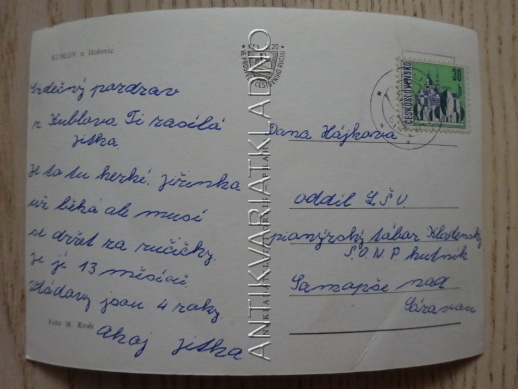 KUBLOV u Hořovic
Srdečný pozdrav
z Kublova Ti zasílá
Jitka.
Je to tu herké. Jiřinka
už běhá ale musí
se držet za ručičky.
Je jí 13 měsíců
Vláďovy jsou 4 roky
Ahoj Jitka
Foto M. Krob
ANTIKVARIATKLADNO
20
ČESKOSLOVENSKO
30
Dana Hájková
oddíl LŠU
pionýrský tábor Kladenský
SONP hutník
Samopše nad
Sázavou